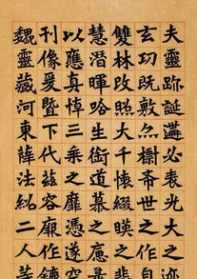 夫靈跡誕遘必表光大之跡
玄功既敷亦標希世之作
雙林改照大千懷綴暎之悲
慧潛暉唅生銜道慕之
以應真悼三乘之靡憑
刊像爰暨下代茲容廠作
魏靈藏河東薛法紹二人等